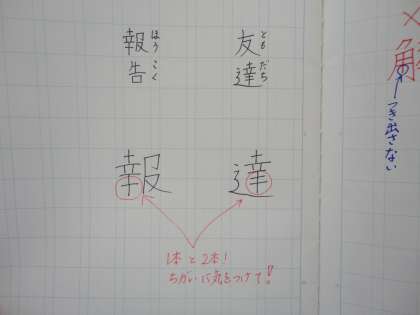 友達
ともだち
報告
ほうこく
達
報
1本と2本!
ちがいに気をつけて!!
×
角
つき出さない